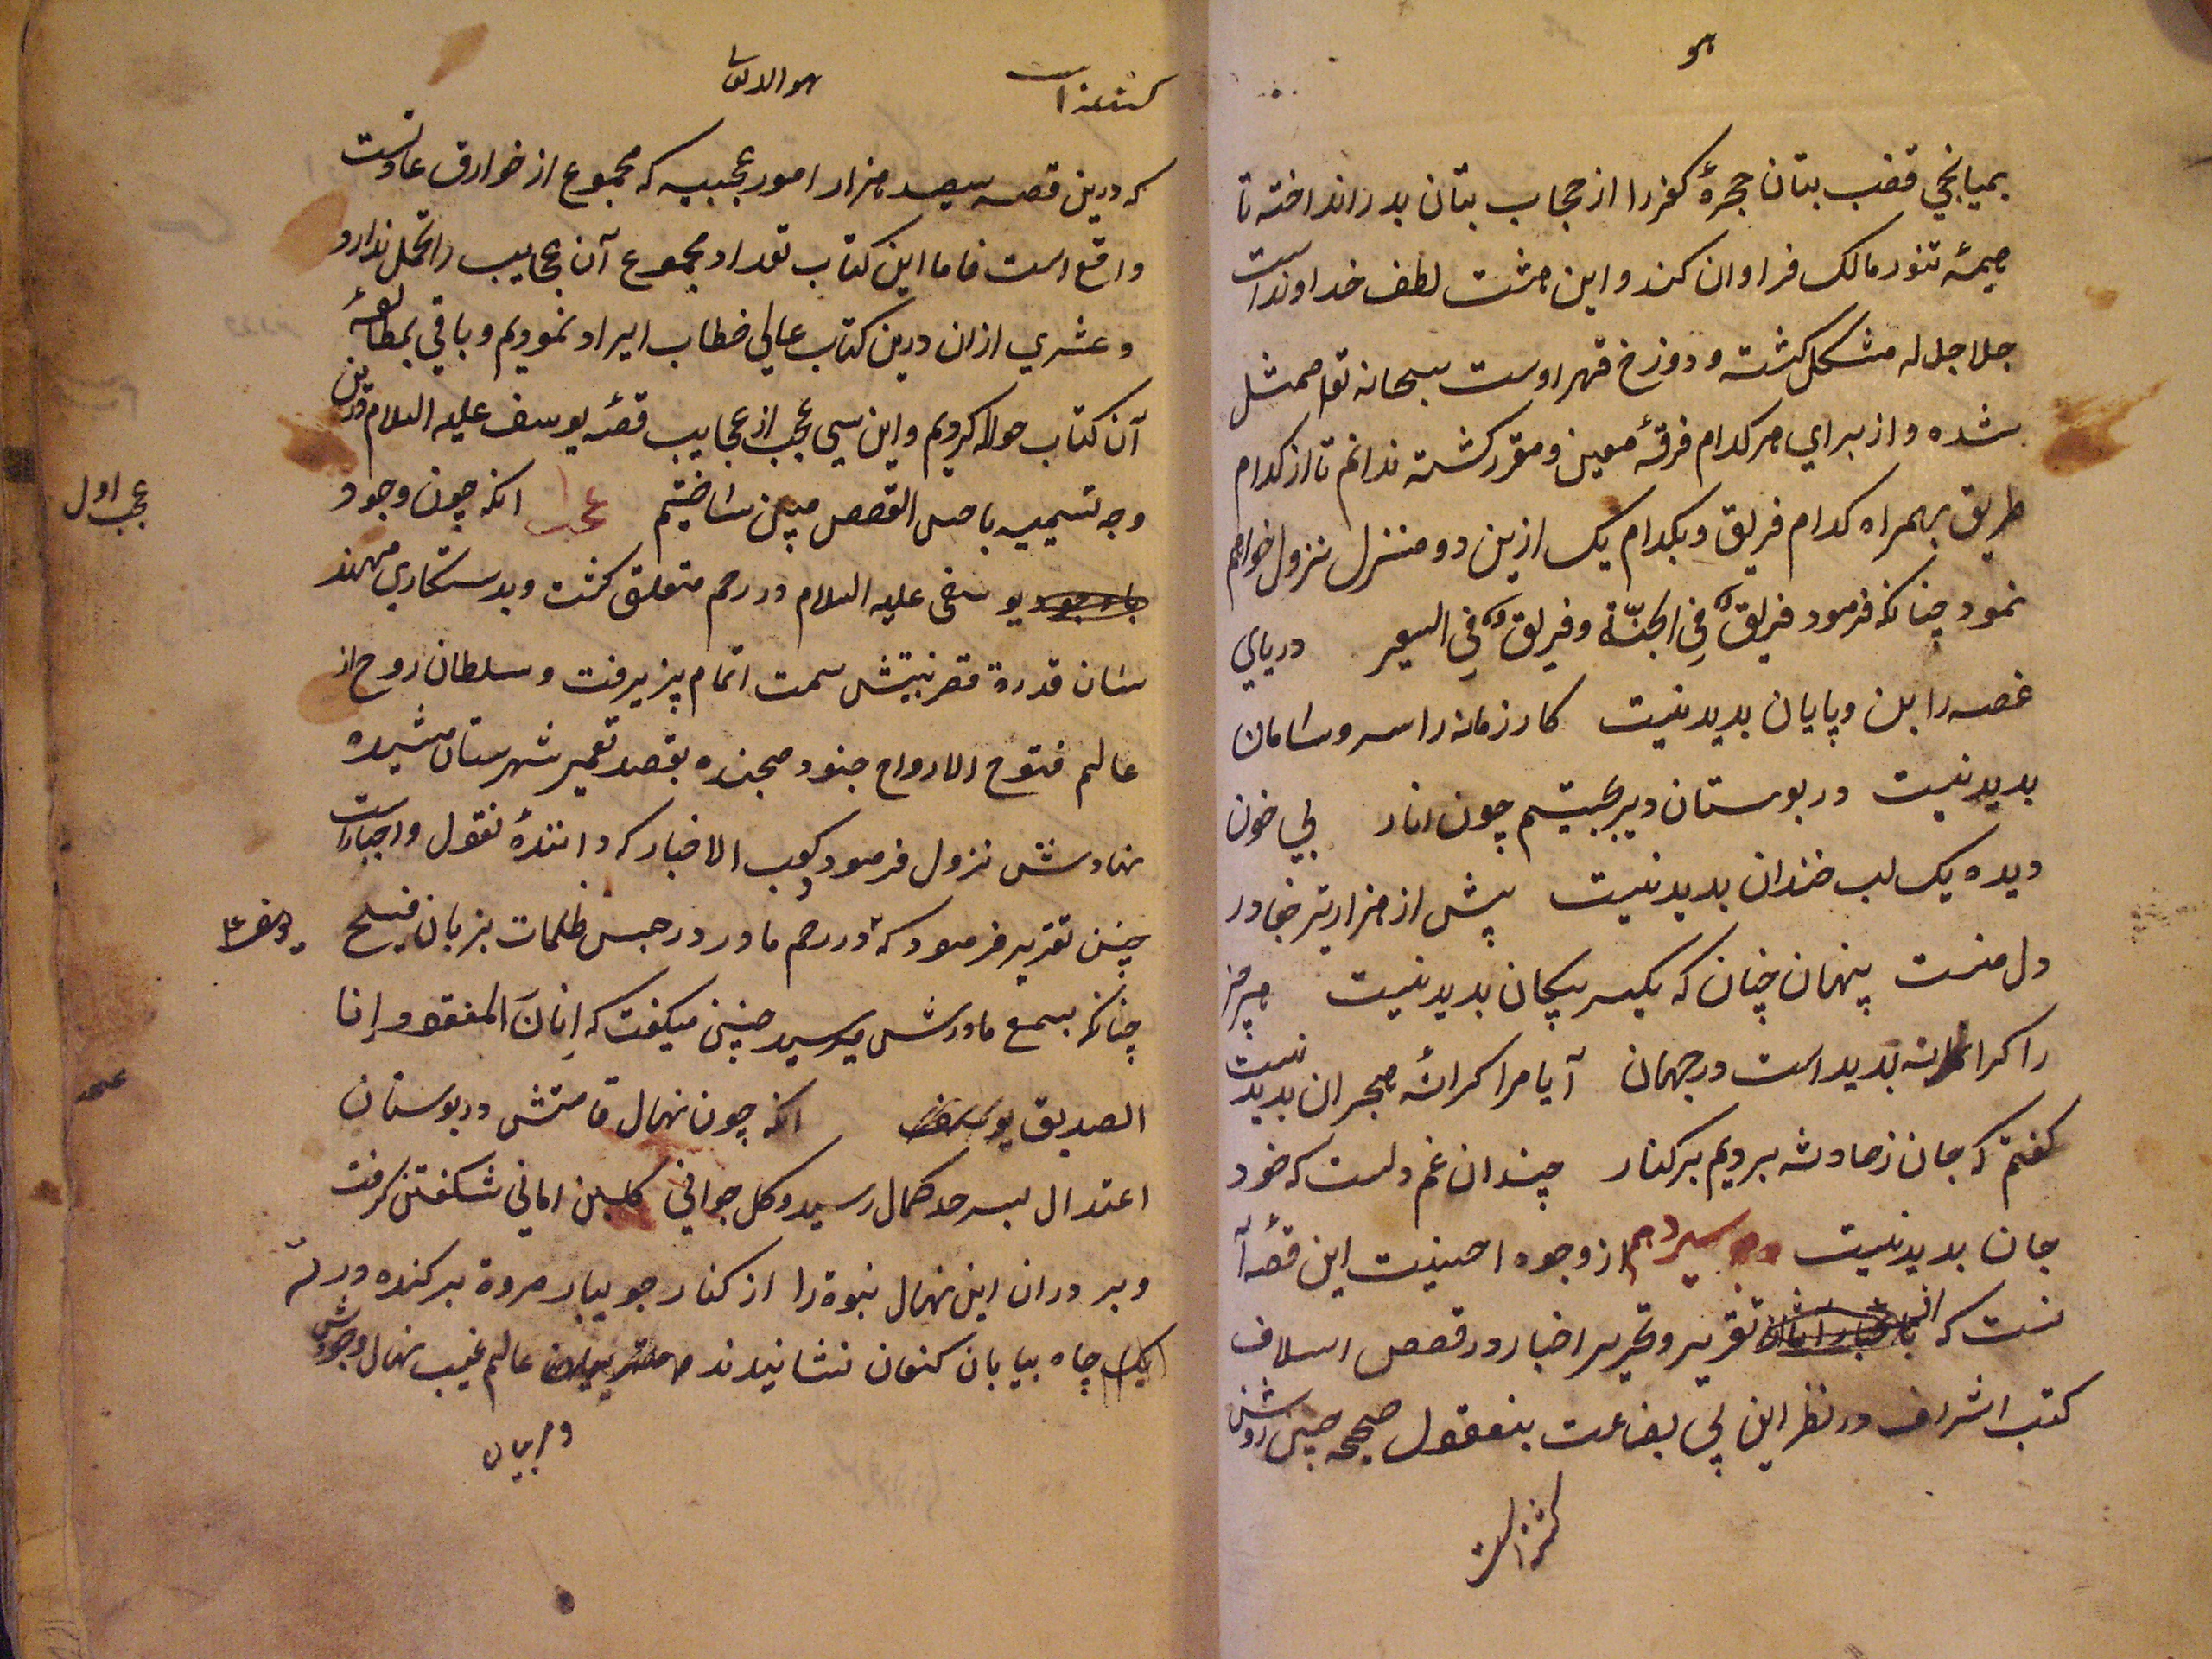 هو
بمیانجی قضب بتان حجرهٔ کفر را از حجاب بتان بدر انداخته تا
تنور مالک فراوان کند و این هشت لطف خداونداست
جلا جل له مشکل کشته و دوزخ قهر اوست سبحانه ممثل
شده و از برای هر کدام فرقهٔ معین و مقرر کشته ندانم تا از کدام
طریق بهمراه کدام فریق و بکدام یک ازین دو منزل نزول خواهم
نمود چنانکه فرمود فریقٌ فِی الجنّة و فریقٌ فِی السعیر دریای
غصه را بن و پایان بدید نیست کار زمانه را سر و سامان
بدید نیست در بوستان دیر بجستیم چون انار بی خون
دیده یک لب خندان بدید نیست پیش از هزار تیر جفا در
دل منست پنهان چنان که یکسر پیکان بدید نیست هر چیز
را کرانه بدید است در جهان آیا مرا کرانهٔ هجران بدید نیست
کفتم که جان ز حادثه بردیم بر کنار چندان غم دلست که خود
جان بدید نیست وجه سیزدهم از وجوه احسنیت این قصهٔ آ
نست که تقریر و تحریر اخبار و قصص اسلاف
کتب اشراف در نظر این بی بضاعت بنقول صحیحه چنین روشن
کشته است
کشته است
که درین قصه سیصد هزار امور عجیبیه که مجموع از خوارق عادتست
واقع است فاما این کتاب تعداد مجموع آن عجایب را تحمل ندارد
و عشری ازان درین کتاب عالی خطاب ایراد نمودیم و باقی بمطالعهٔ
آن کتاب حواله کردیم و این سی عجب از عجایب قصهٔ یوسف علیه السلام درین
وجه تسمیه باحسن القصص مبین ساختیم عجب ۱ انکه چون وجود
عجب اول
یوسفی علیه السلام در رحم متعلق کشت و بدستکاری مهند
سان قدرة قصر بنیتش سمت اتمام پذیرفت و سلطان روح از
عالم فتوح الارواح جنود مجنده بقصد تعمیر شهرستان مشیده
نهادش نزول فرمود کعب الاخبار که دانندهٔ نقول و اخبارست
چنین تقریر فرمود که در رحم مادر در حبس ظلمات بزبان فصیح
چنانکه بسمع مادرش میرسید چنین میکفت که اِنا المفقود و إنا
الصدیق یوسف انکه چون نهال قامتش در بوستان
اعتدال بسرحد کمال رسید و کل جوانی کلبن امانی شکفتن کرفت
و برادران این نهال نبوة را از کنار جویبار مروة برکنده در تهٔ
یک چاه بیابان کنعان نشانیدند عالم غیب نهال وجودش